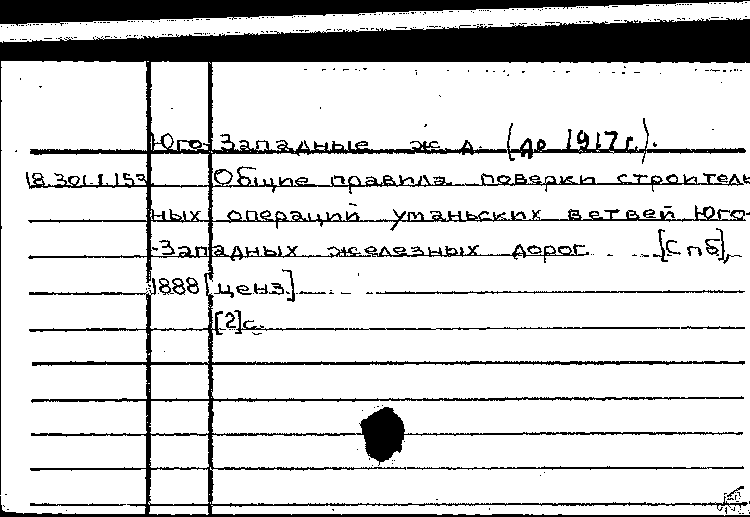 Юго-Западные ж. д. (до 1917 г.).
18.301.1.153 Общие правила поверки строитель
ных операций уманьских ветвей Юго-
-Западных железных дорог. [Спб],
1888 [ценз.]
[2]с.